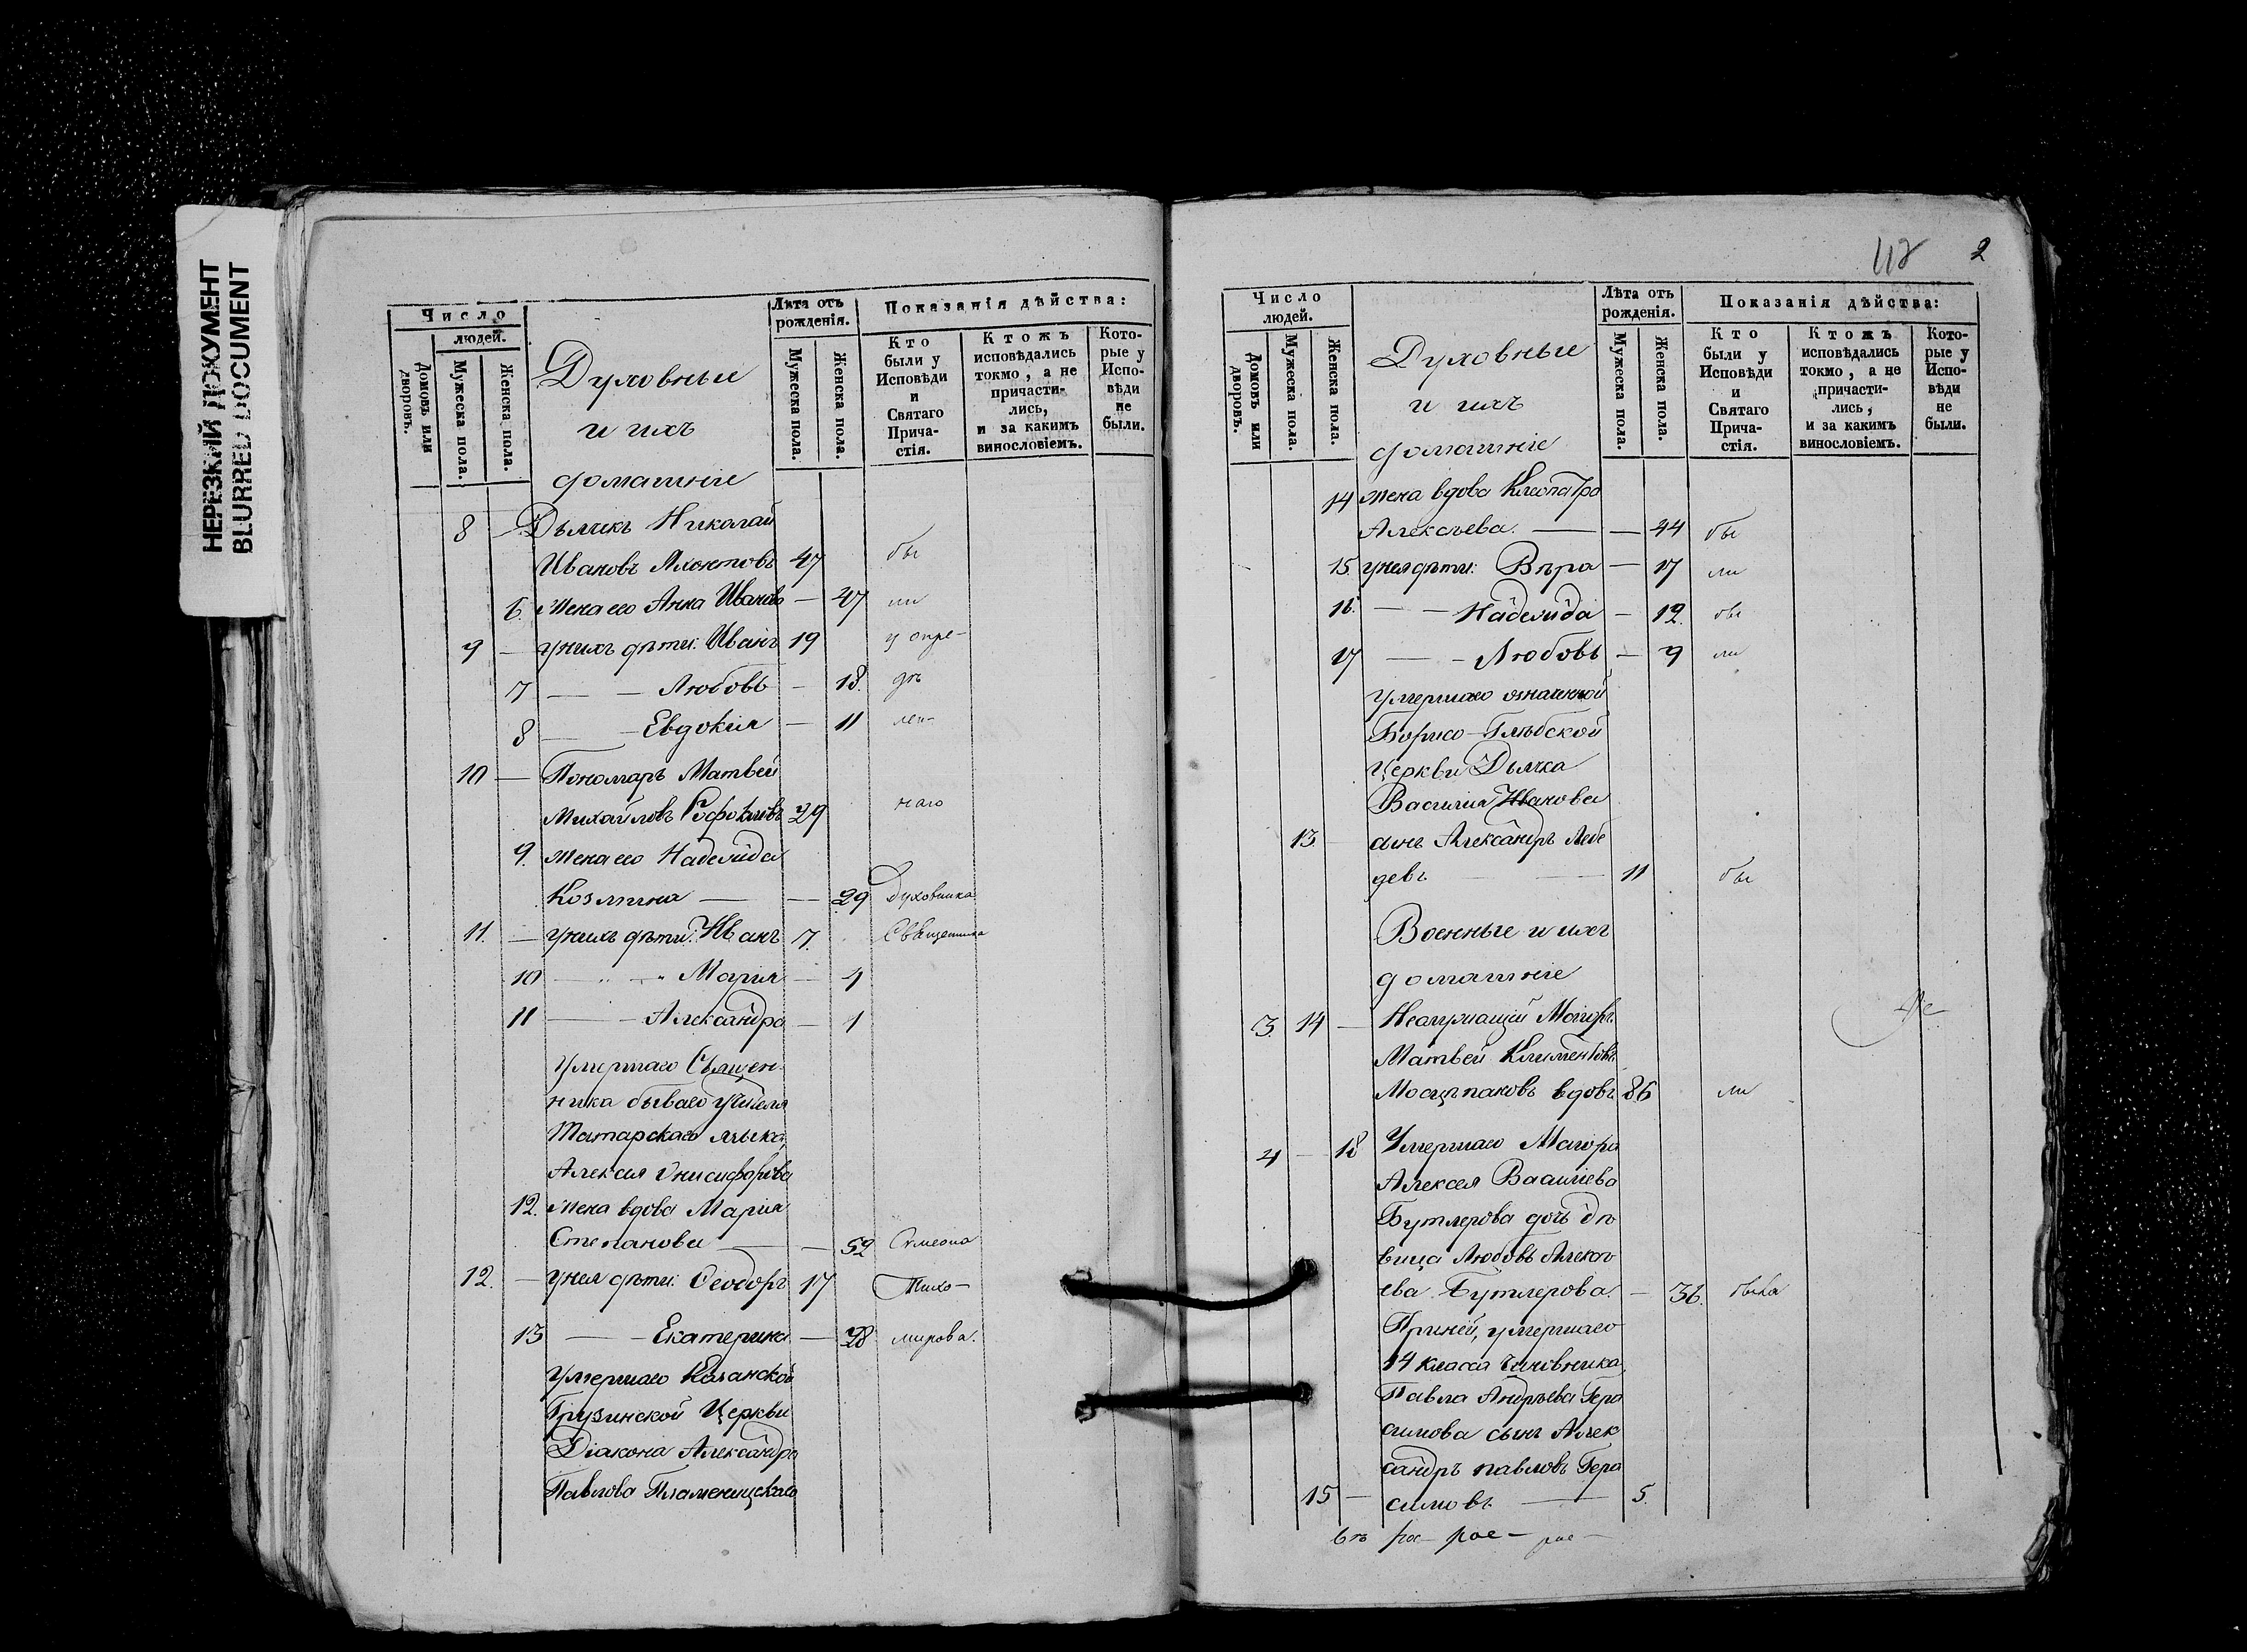 НЕРЕЗКИЙ ДОКУМЕНТ
BLURRED DOCUMENT
Число
людей.
Домовъ или дворовъ.
Мужеска пола.
Женска пола.
Духовные
и ихъ
домашніе
Лѣта отъ рожденія.
Мужеска пола.
Женска пола.
Показанія дѣйства:
Кто были у Исповѣди и Святаго Прича-стія.
Ктожъ исповѣдались токмо, а не причасти-лись, и за какимъ винословіемъ.
Кото-рые у Испо-вѣди не были.
8 — Дьячкъ Николай
Ивановъ 47 бы
6. Жена его Анна Иванова — 47 ли
9 — у нихъ дѣти: Иванъ 19 у опре-
7 — — Любовь — 18. дѣ
8 — — Евдокія — 11 лен-
10 — Пономарь Матвей
Михайловъ 29 наго
9. жена его Надежда
Козмина — — 29 Духовника
11. — у нихъ дѣти: Иванъ 7. Священника
10 — — Марія — 4
11 — — Александра — 1
умершаго Священ-
ника бываго учителя
Татарскаго языка
Алексея Онисифорова
12. жена вдова Марія
Степанова — — 52 Симеона
12. — у нея дѣти: Ѳеодоръ 17 Тихо-
13 — — Екатерина — 28 мирова.
умершаго Казанской
Грузинской Церкви
Діакона Александра
Павлова
118 2
Число
людей.
Домовъ или дворовъ.
Мужеска пола.
Женска пола.
Духовные
и ихъ
домашніе
Лѣта отъ рожденія.
Мужеска пола.
Женска пола.
Показанія дѣйства:
Кто были у Исповѣди и Святаго Прича-стія.
Ктожъ исповѣдались токмо, а не причасти-лись, и за какимъ винословіемъ.
Кото-рые у Испо-вѣди не были.
14 жена вдова Клеопатра
Алексѣева. — — 44 бы
15. у нея дѣти: Вѣра — 17 ли
16. — — Надежда — 12. бы
17 — — Любовь — 9 ли
умершаго означенной
Борисо-Глѣбской
Церкви Дьячка
Василія Иванова
13. сынъ Александръ Лебе
девъ — — 11 бы
Военные и ихъ
домашніе
3. 14 —
Матвей Климентовъ
вдовъ 86 ли
4 — 18 Умершаго Маіора
Алексея Васильева
Бутлерова дочь дѣ
вица Любовь Алексѣ
ева Бутлерова. — 36. была
При ней, умершаго
14 класса чиновника
Павла Андрѣева Гера
симова сынъ Алек
сандръ Павловъ Гера
15 — симовъ — 5.